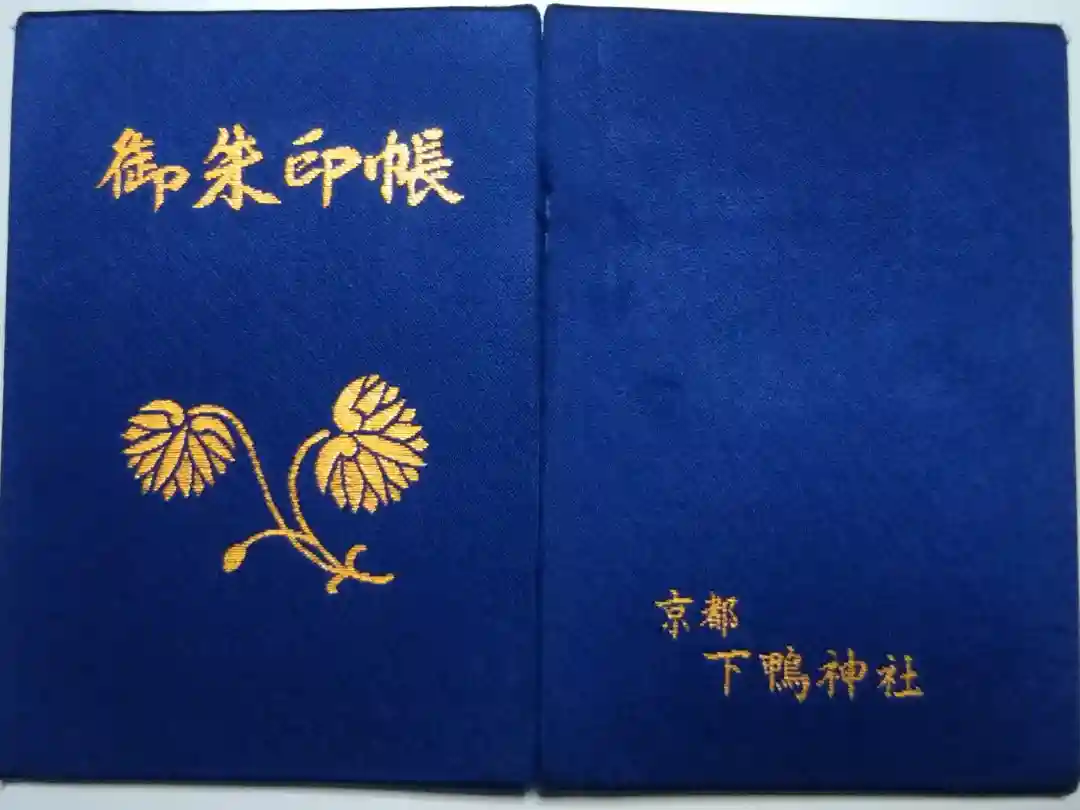 御朱印帳
京都
下鴨神社